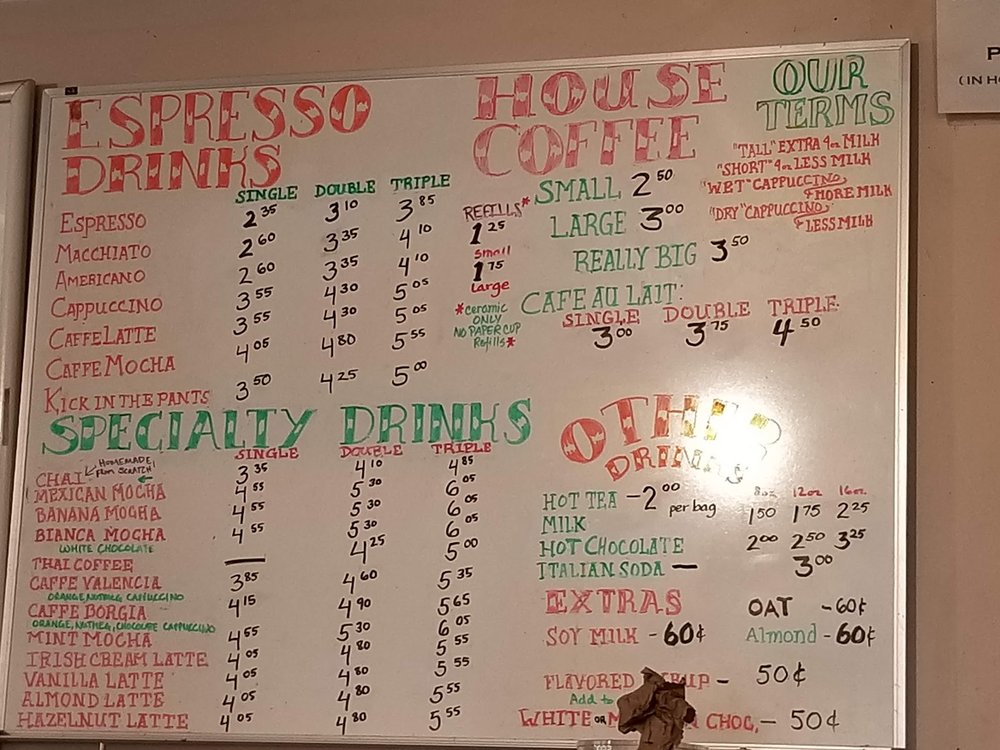 ESPRESSO
DRINKS
SINGLE DOUBLE TRIPLE
ESPRESSO 2 35 3 10 3 85
MACCHIATO 2 60 3 35 4 10
AMERICANO 2 60 3 35 4 10
CAPPUCCINO 3 55 4 30 5 05
CAFFE LATTE 3 55 4 30 5 05
CAFFE MOCHA 4 05 4 80 5 55
KICK IN THE PANTS 3 50 4 25 5 00
REFILLS*
1 25
small
1 75
large
*ceramic
ONLY
NO PAPER CUP
Refills*
HOUSE
COFFEE
SMALL 2 50
LARGE 3 00
REALLY BIG 3 50
CAFE AU LAIT:
SINGLE DOUBLE TRIPLE
3 00 3 75 4 50
OUR
TERMS
"TALL" EXTRA 4oz MILK
"SHORT" 4oz LESS MILK
"WET" CAPPUCCINO,
MORE MILK
"DRY" CAPPUCCINO,
LESS MILK
SPECIALTY DRINKS
SINGLE DOUBLE TRIPLE
HOMEMADE,
from SCRATCH
CHAI 3 35 4 10 4 85
MEXICAN MOCHA 4 55 5 30 6 05
BANANA MOCHA 4 55 5 30 6 05
BIANCA MOCHA 4 55 5 30 6 05
WHITE CHOCOLATE
THAI COFFEE — 4 25 5 00
CAFFE VALENCIA 3 85 4 60 5 35
ORANGE, NUTMEG CAPPUCCINO
CAFFE BORGIA 4 15 4 90 5 65
ORANGE, NUTMEG, CHOCOLATE CAPPUCCINO
MINT MOCHA 4 55 5 30 6 05
IRISH CREAM LATTE 4 05 4 80 5 55
VANILLA LATTE 4 05 4 80 5 55
ALMOND LATTE 4 05 4 80 5 55
HAZELNUT LATTE 4 05 4 80 5 55
OTHER
DRINKS
HOT TEA - 2 00 per bag
8oz 12oz 16oz
MILK 1 50 1 75 2 25
HOT CHOCOLATE 2 00 2 50 3 25
ITALIAN SODA — 3 00
EXTRAS
OAT - 60¢
SOY MILK - 60¢ Almond - 60¢
FLAVORED - 50¢
Add to
WHITE OR CHOC. - 50¢
P
(IN H